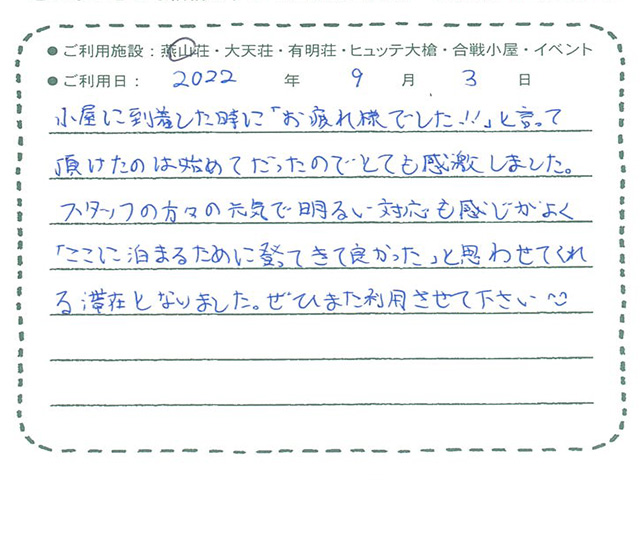 ● ご利用施設：燕山荘・大天荘・有明荘・ヒュッテ大槍・合戦小屋・イベント
● ご利用日： 2022 年 9 月 3 日
小屋に到着した時に「お疲れ様でした!!」と言って
頂けたのは始めてだったのでとても感激しました。
スタッフの方々の元気で明るい対応も感じがよく
「ここに泊まるために登ってきて良かった」と思わせてくれ
る滞在となりました。ぜひまた利用させて下さい